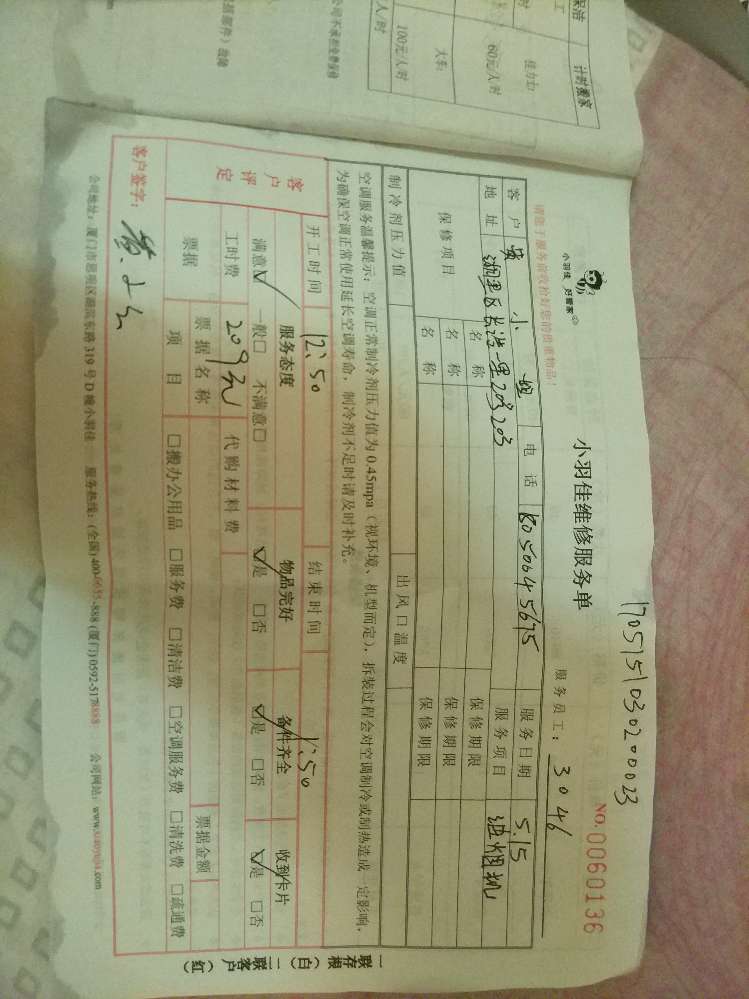 170515103020023
小羽佳 好管家
小羽佳维修服务单
NO. 0060136
请您于服务前收拾好您的贵重物品:
服务员工: 3046
客户 黄小姐 电话 服务日期 5.15
地址 湖里区长浩一里20号203 服务项目 油烟机
保修项目 名称 保修期限
名称 保修期限
名称 保修期限
制冷剂压力值 出风口温度
空调服务温馨提示:空调正常制冷剂压力值为0.45mpa(视环境、机型而定),拆装过程会对空调制冷或制热造成一定影响,
为确保空调正常使用延长空调寿命,制冷剂不足时请及时补充。
开工时间 12:50 结束时间 1:50
客户评定 服务态度 物品完好 备件齐全 收到卡片
满意☑ 一般□ 不满意□ ☑是 □否 ☑是 □否 ☑是 □否
工时费 209元 代购材料费
票据 票据名称 票据金额
项目 □搬办公用品 □服务费 □清洁费 □空调服务费 □清洗费 □疏通费
客户签字:
公司地址:厦门市思明区湖滨东路319号D幢小羽佳 服务热线:(全国)400-6655-888 (厦门)0592-5178888 公司网站:www.xiaoyujia.com
一联存根(白) 二联客户(红)
计时搬家
佳力士:
60元/人/时
大车:
100元/人/时